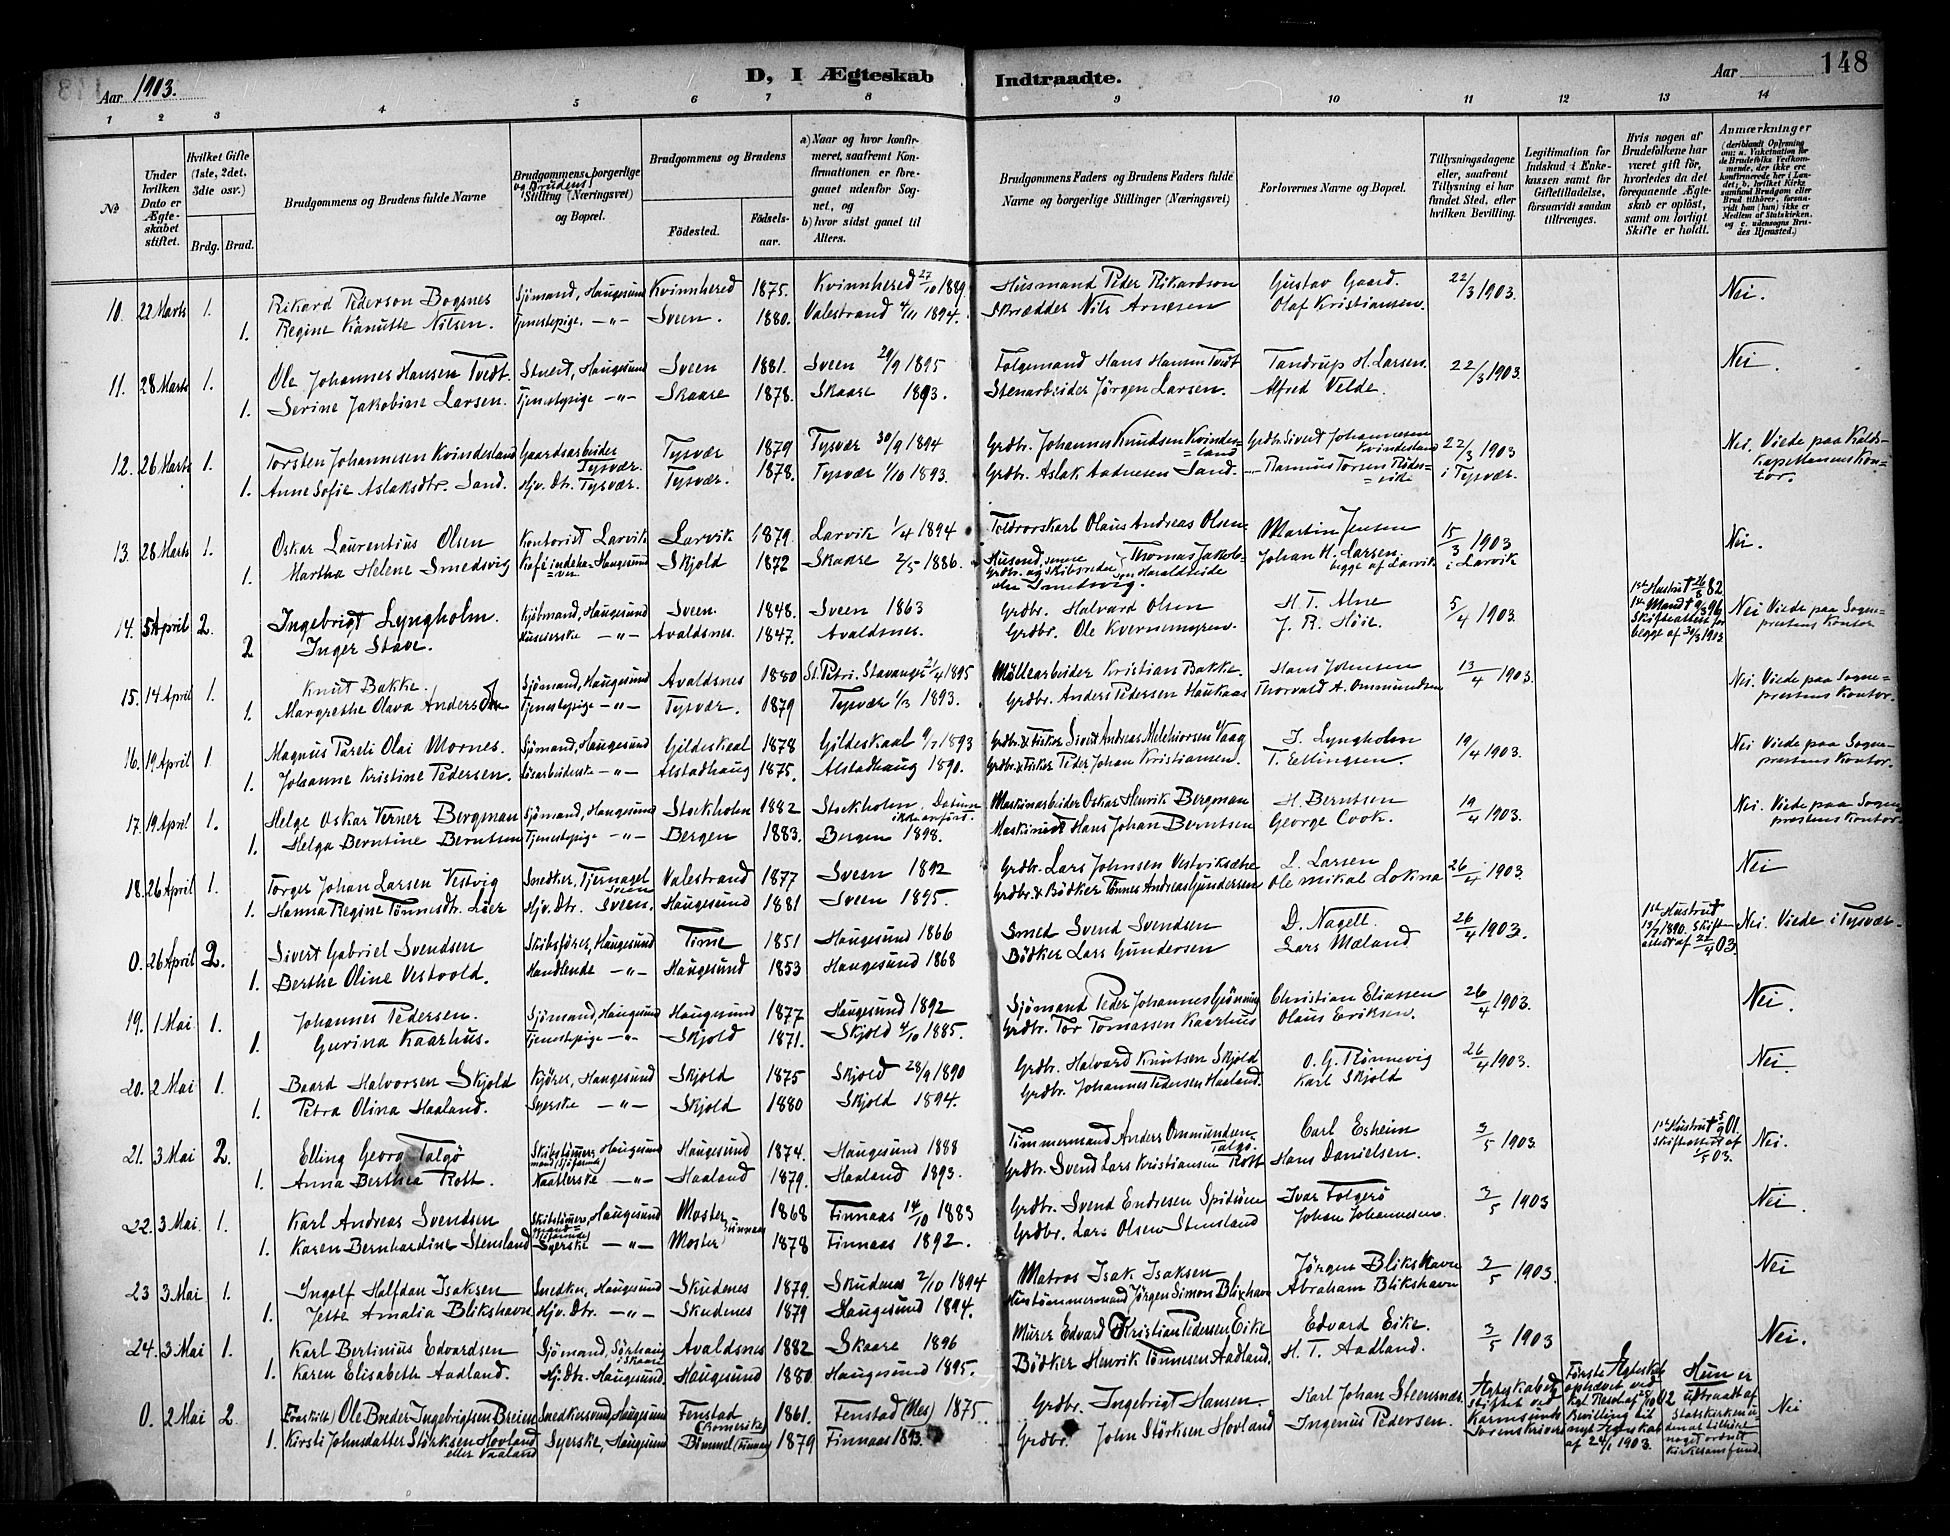 Aar 1903.
D, I Ægteskab Indtraadte.
Aar 148
1 2 3 4 5 6 7 8 9 10 11 12 13 14
No
Under hvilken Dato er Ægteskabet stiftet.
Hvilket Gifte (1ste, 2det. 3die osv.)
Brdg. Brud.
Brudgommens og Brudens fulde Navne
Brudgommens og Brudens borgerlige Stilling (Næringsvei) og Bopæl.
Brudgommens og Brudens
Fødested.
Fødselsaar.
a) Naar og hvor konfirmeret, saafremt Konfirmationen er foregaaet udenfor Sognet, og
b) hvor sidst gaaet til Alters.
Brudgommens Faders og Brudens Faders fulde Navne og borgerlige Stillinger (Næringsvei)
Forlovernes Navne og Bopæl.
Tillysningsdagene eller, saafremt Tillysning ei har fundet Sted, efter hvilken Bevilling.
Legitimation for Indskud i Enkekassen samt for Giftetilladelse, forsaavidt saadan tiltrænges.
Hvis nogen af Brudefolkene har været gift før, hvorledes da det foregaaende Ægteskab er opløst, samt om lovligt Skifte er holdt.
Anmærkninger
(deriblandt Oplysning om: a. Vakcination for de Brudefolks Vedkommende, der ikke ere konfirmerede her i Landet; b. hvilket Kirkesamfund Brudgom eller Brud tilhører, forsaavidt han (hun) ikke er Medlem af Statskirken, og c. udensogns Brudes Hjemsted.)
10. 22 Marts 1. Rikard Pederson Bogsnes Sjömand, Haugesund Kvinnhered 1875. Kvinnhered 27/10 1889 Husmand Peder Rikardson Gustav Gaard. 22/3 1903. Nei.
1. Regine Kanutte Nilsen. Tjenestepige -"- Sveen. 1880. Valestrand 4/11 1894. Skrædder Nils Arnesen Olaf Kristiansen.
11. 28 Marts 1. Ole Johannes Hansen Tvedt. Stuert, Haugesund Sveen 1881. Sveen 29/9 1895 Folgemand Hans Hansen Tvedt Tandrup H. Larsen. 22/3 1903. Nei.
1. Serine Jakobine Larsen. Tjenestepige -"- Skaare 1878. Skaare 1893. Stenarbeider Jörgen Larsen. Alfred Velde.
12. 26 Marts 1. Torsten Johannesen Kvindesland Gaardsarbeider Tysvær. Tysvær 1879 Tysvær 30/9 1894 Grdbr. Johannes Knudsen Kvindesland Grdbr. Sivert Johannesen Kvindesland 22/3 1903 Nei. Viede paa Kaldskapellanens Kontor.
1. Anne Sofie Aslaksdtr. Sand. Hjv. Dtr. Tysvær. Tysvær. 1878. Tysvær 1/10 1893. Grdbr. Aslak Aadnesen Sand. Rasmus Torsen i Tysvær.
13. 28 Marts 1. Oskar Laurentius Olsen Kontorist Larvik Larvik 1879. Larvik 1/4 1894. Toldrorskarl Olaus Andreas Olsen Martin Jensen 15/3 1903 Nei.
1. Martha Helene Smedsvig Kafeindehaver Haugesund Skjold 1872 Skaare 2/5 1886. Grdbr. og Skibsreder Thomas Jakobsen Haraldseide eller Smedsvig. Johan H. Larsen, begge af Larvik i Larvik
14. 5 April 2. Ingebrigt Lyngholm. Kjöbmand, Haugesund Sveen. 1848. Sveen 1863 Grdbr. Halvard Olsen H. T. Alne 5/4 1903 1st Hustru † 26/8 82 Nei Viede paa Sogneprestens Kontor
2 Inger Stave. -"- Avaldsnes 1847. Avaldsnes. Grdbr. Ole Kvernemyren. J. R. Höie. 1st Mand † 9/3 96 Skifteattest for begge af 30/3 1903
15. 14 April 1. Knut Bakke. Sjömand, Haugesund Avaldsnes 1880 St. Petri. Stavanger 21/4 1895 Möllearbeider Kristian Bakke. Hans Johnsen 13/4 1903. Nei. Viede paa Sogneprestens Kontor.
1. Margrethe Olava Andersdtr Tjenestepige -"- Tysvær. 1879 Tysvær 1/3 1893. Grdbr. Anders Pedersen Haukaas Thorvald A. Ommundsen
16. 19 April 1 Magnus Pareli Olai Mornes. Sjömand, Haugesund Gildeskaal 1878 Gildeskaal 9/7 1893 Grdbr. & Fisker Sivert Andreas Melchiorsen Vaag I. Lyngholm 19/4 1903. Nei Viede paa Sogneprestens Kontor.
1. Johanne Kristine Pedersen. Lösarbeiderske -"- Alstadhaug 1875. Alstadhaug 1890. Grdbr. & Fisker Peder Johan Kristiansen. T. Ellingsen.
17. 19 April 1. Helge Oskar Verner Bergman Sjömand, Haugesund Stockholm 1882 Stockholm. Datum ikke anført. Maskinarbeider Oskar Henrik Bergman H. Berntsen 19/4 1903. Nei. Viede paa Sogneprestens Kontor
1. Helga Berntine Berntsen Tjenestepige -"- Bergen 1883. Bergen 1898. Maskinist Hans Johan Berntsen George Cook.
18. 26 April 1. Torger Johan Larsen Vestvig Snedker, Tjernagel Sveen Valestrand 1877 Sveen 1892 Grdbr. Lars Johnsen L. Larsen 26/4 1903. Nei
1. Hanna Regine Tönnesdtr. Lier Hjv. Dtr. Sveen. Haugesund 1881 Sveen 1895. Grdbr. & Bödker Tönnes Andreas Gundersen Ole Mikal Lokna
0. 26 April 2. Sivert Gabriel Svendsen Skibsförer, Haugesund Time 1851 Haugesund 1866 Smed Svend Svendsen D. Nagell. 26/4 1903. 1st Hustru † 19/7 1890. Skifteattest af 22/4 03. Nei. Viede i Tysvær.
1. Berthe Oline Vestvold. Handlende -"- Haugesund 1853 Haugesund 1868 Bödker Lars Gundersen Lars Mæland
19. 1 Mai 1. Johannes Pedersen. Sjömand, Haugesund Haugesund 1877 Haugesund 1892 Sjömand Peder Johannes Grönning Christian Eliassen 26/4 1903. Nei.
1. Gurina Kaarhus. Tjenestepige -"- Skjold 1871. Skjold 4/10 1885. Grdbr. Tor Tomassen Kaarhus Olaus Eriksen.
20. 2 Mai 1. Baard Halvorsen Skjold Kjörer, Haugesund Skjold 1875 Skjold 28/9 1890 Grdbr. Halvard Knutsen Skjold O. G. Rönnevig 26/4 1903. Nei.
1. Petra Olina Haaland. Syerske -"- Skjold 1880 Skjold 1894. Grdbr. Johannes Pedersen Haaland. Karl Skjold
21. 3 Mai 2. Elling Georg Talgö Skibstömmermand (sjöfarende) Haugesund Haugesund 1874. Haugesund 1888 Tömmermand Anders Ommundsen Talgö. Carl Esheim 3/5 1903. 1st Hustru † 5/9 01. Skifteattest af 1/5 03. Nei.
1. Anna Berthea Rott. -"- Haaland 1879. Haaland 1893. Grdbr. Svend Lars Kristiansen Rott Hans Danielsen.
22. 3 Mai. 1. Karl Andreas Svendsen Skibstömmermand (sjöfarende) Haugesund Moster Finnaas 1868 Finnaas 14/10 1883 Grdbr. Svend Endresen Spidsöen Ivar Folgerö 3/5 1903 Nei.
1. Karen Bernhardine Stensland Syerske -"- Moster 1878 Finnaas 1892. Grdbr. Lars Olsen Stensland Johan Johannesen.
23 3 Mai 1. Ingolf Halfdan Isaksen Snedker, Haugesund Skudenes 1879. Skudenes 2/10 1894 Matros Isak Isaksen Jörgen Blikshavn 3/5 1903. Nei
1. Jette Amalia Blikshavn Hjv. Dtr. -"- Skudenes 1879 Haugesund 1894. Hustömmermand Jörgen Simon Blixhavn Abraham Blikshavn
24. 3 Mai 1. Karl Bertinius Edvardsen Sjömand, Sörhaug i Skaare Avaldsnes 1882 Skaare 1896 Murer Edvard Kristian Pedersen Eike Edvard Eike. 3/5 1903 Nei.
1. Karen Elisabeth Aadland. Hj. Dtr. Haugesund. Haugesund 1880 Haugesund 1895. Bödker Henrik Tönnesen Aadland. H. T. Aadland.
0. 2 Mai 2. (Fraskilt) Ole Breder Ingebrigtsen Breien Snedkersvend, Haugesund Fenstad (Romerike) 1861. Fenstad (Nes) 1875. Grdbr. Ingebrigt Hansen. Karl Johan Steensnæs Ægteskabet stiftet ved Karmsunds Sorenskriveri Første Ægteskab ophævet ved Kgl. Resol. af Bevilling til nyt Ægteskab af 24/1 1903. Hun er udtraadt af Statskirken uden at tilhøre noget ordnet kirkesamfund. Nei
1. Kirsti Johnsdatter Störksen Hovland eller Vaaland Syerske, Haugesund Bömmel (Finnaas) 1879 Finnaas 1893. Grdbr. John Störksen Hovland Ingenius Pedersen.